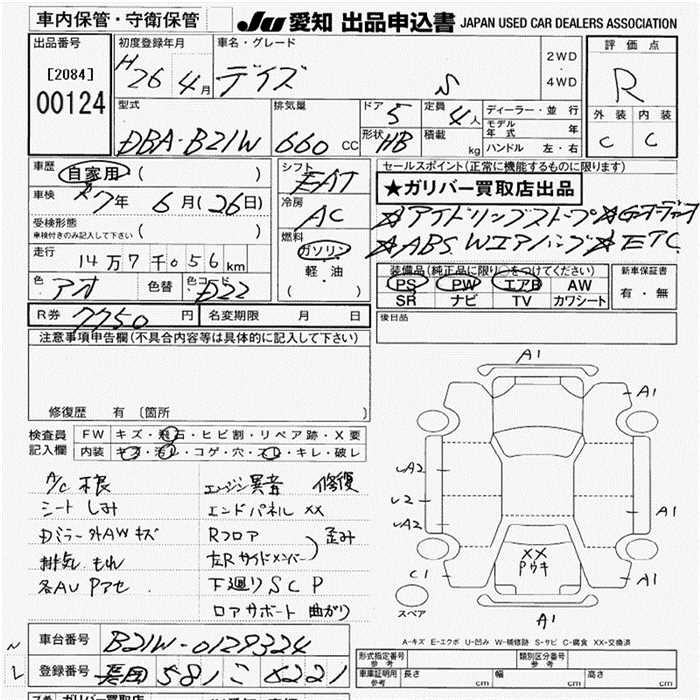 車内保管・守衛保管
JU 愛知 出品申込書 JAPAN USED CAR DEALERS ASSOCIATION
出品番号
[2084]
00124
初度登録年月
H 26 4月
車名・グレード
デイズ S
2WD
・
4WD
評価点
R
外装 内装
C C
型式
DBA-B21W
排気量
660 CC
ドア 5
形状 HB
定員 4人
積載 kg
ディーラー・並行
モデル年式 年
ハンドル 左・右
車歴 自家用 ( )
車検 7年 6月(26日)
受検形態
車検付きのみ記入して下さい ( )
走行 14万7千056km
色 アオ 色替 色コード B22
シフト FAT
冷房 AC
燃料
ガソリン
軽・油
( )
セールスポイント(正常に機能するものに限ります)
★ガリバー買取店出品
☆アイドリングストップ
☆ABS Wエアバッグ☆ETC
装備品(純正品に限り○をつけてください)
PS PW エアB AW
SR ナビ TV カワシート
新車保証書
有・無
R券 7750 円 名変期限 月 日
後日品
注意事項申告欄(不具合内容等は具体的に記入して下さい)
修復歴 有 〔箇所 〕
検査員
記入欄
FW キズ・飛石・ヒビ割・リペア跡・X要
内装 キズ・汚レ・コゲ・穴・スレ・キレ・破レ
A/C 不良
シート しみ
Dミラー外AW キズ
排気 もれ
各AU Pアセ
エンジン異音 修復
エンドパネル XX
Rフロア
左Rサイドメンバー
歪み
下廻り S C P
ロアサポート 曲がり
A1
A1
A2
2
A2
A1
XX
Pウキ
C1
A1
A1
スペア
A-キズ E-エクボ U-凹み W-補修跡 S-サビ C-腐食 XX-交換済
車台番号 B21W-0129324
登録番号 581 こ 6221
形式指定番号
参考
類別区分番号
参考
車庫証明用
参考
長さ cm 幅 cm 高さ cm
ガリバー買取店